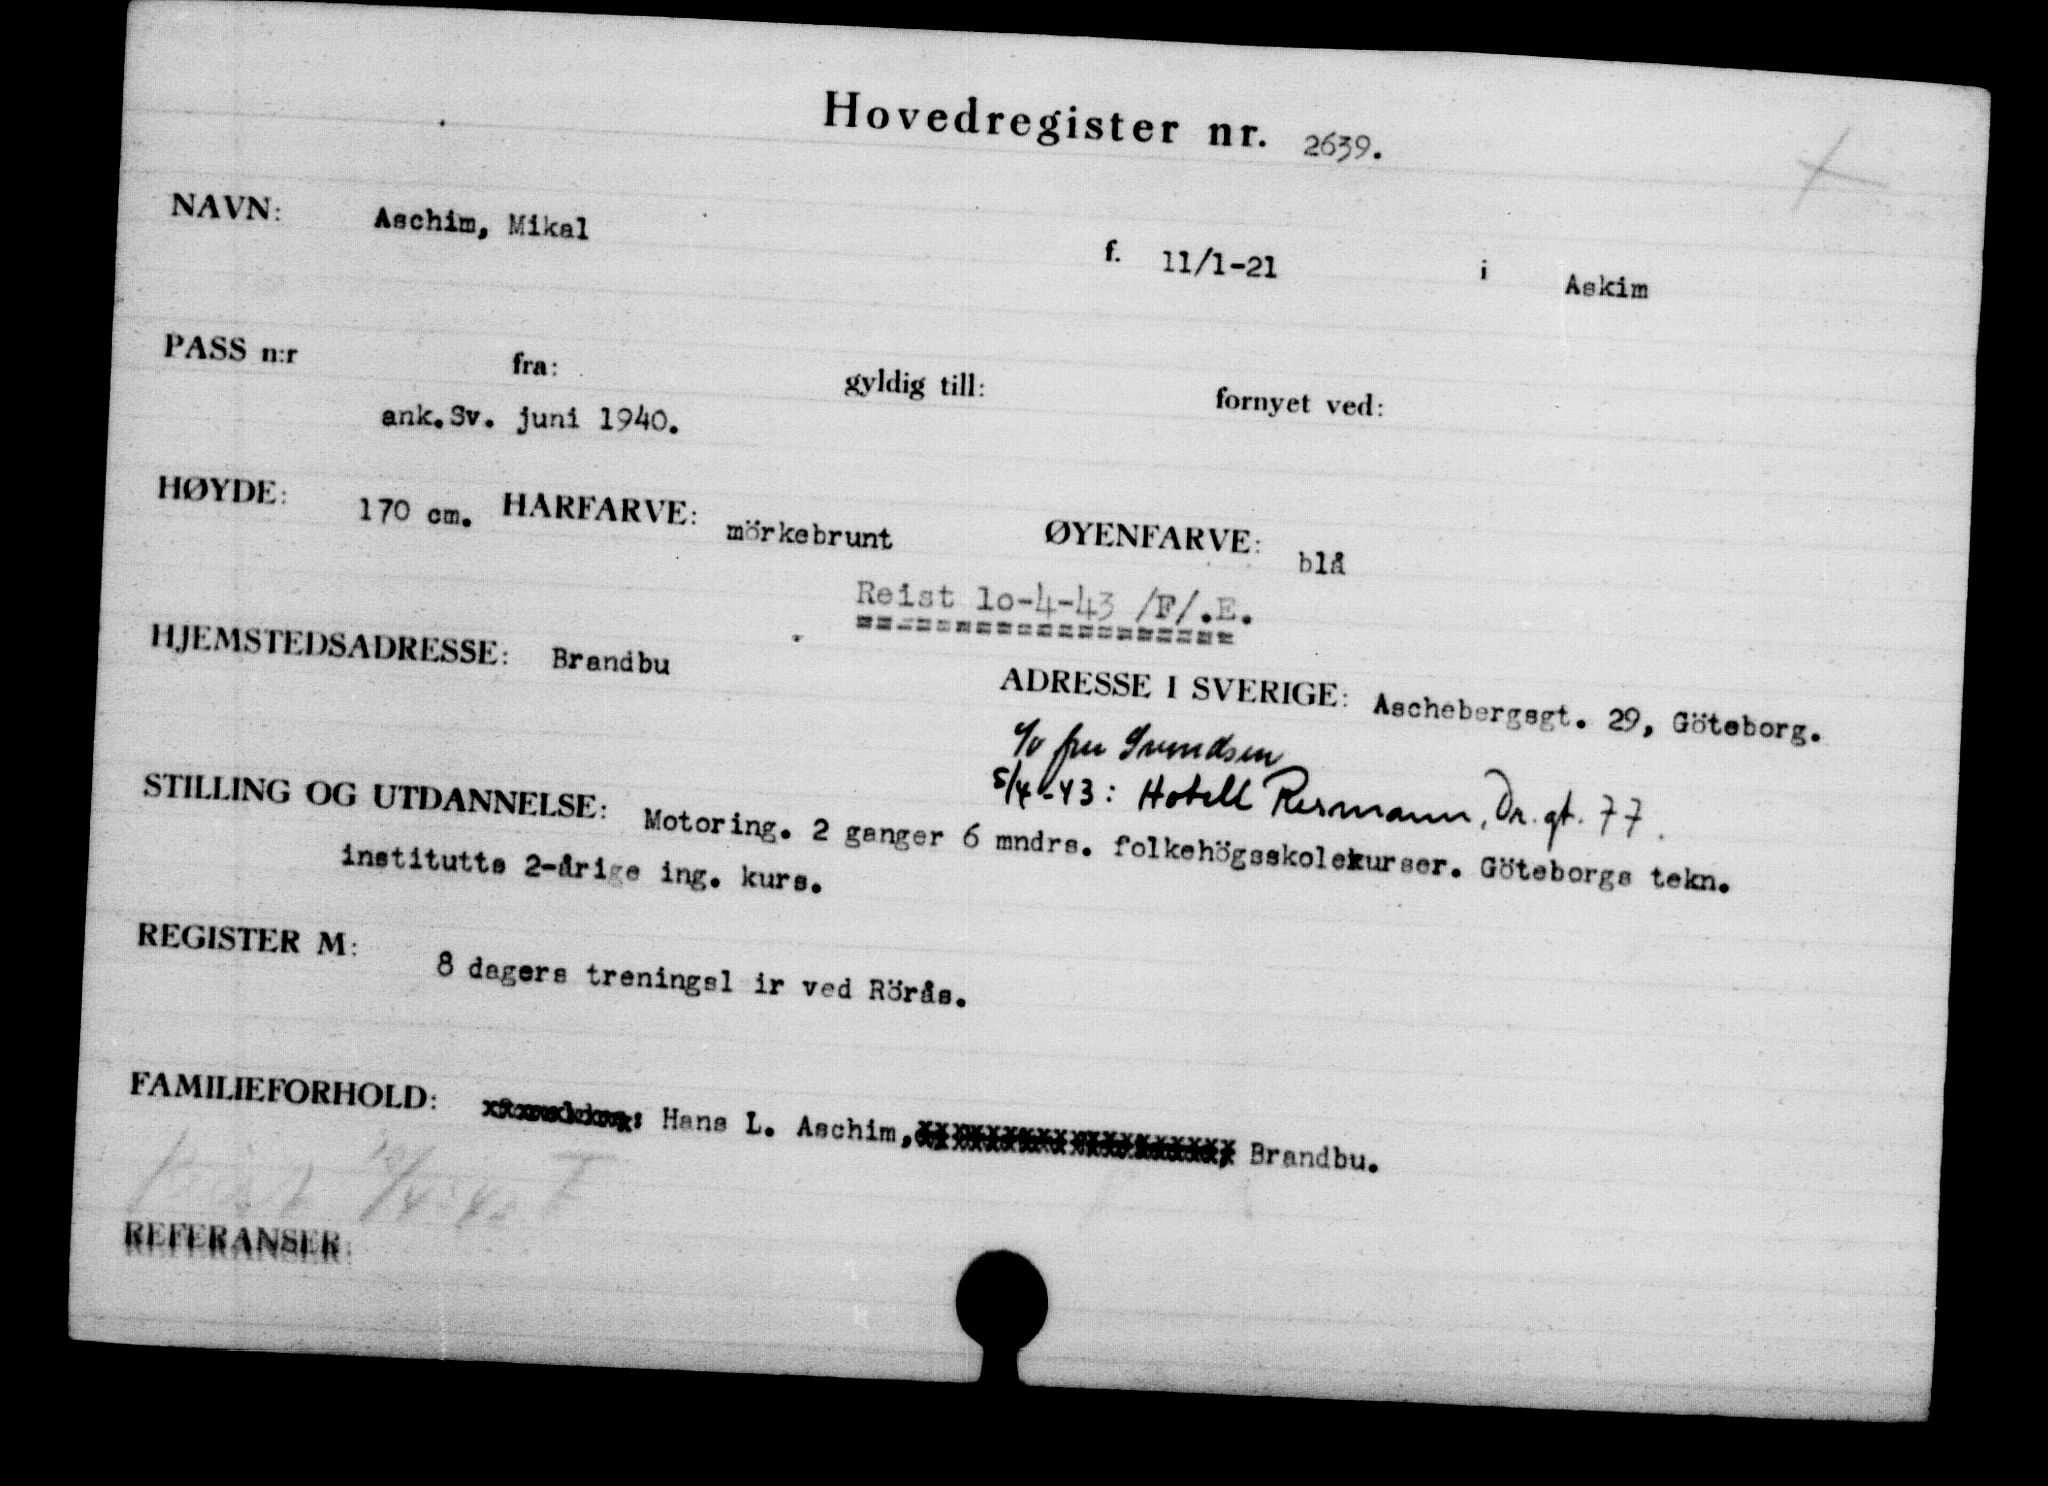 Hovedregister nr. 2639.
NAVN: Aschim, Mikal f. 11/1-21 i Askim
PASS n:r fra: gyldig till: fornyet ved:
ank.Sv. juni 1940.
HØYDE: 170 cm. HARFARVE: mörkebrunt ØYENFARVE: blå
Reist 10-4-43 /F/.E.
HJEMSTEDSADRESSE: Brandbu
ADRESSE I SVERIGE: Aschebergsgt. 29, Göteborg.
c/o fru Svendsen
5/4-43: Hotell Resmann, Dr. gt. 77.
STILLING OG UTDANNELSE: Motoring. 2 ganger 6 mndrs. folkehögsskolekurser. Göteborgs tekn.
institutts 2-årige ing. kurs.
REGISTER M: 8 dagers treningsl ir ved Rörås.
FAMILIEFORHOLD: : Hans L. Aschim, Brandbu.
Reist 10/4-43 F
REFERANSER: